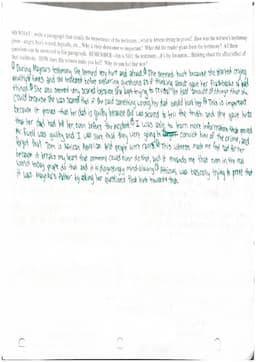 SO WHAT - write a paragraph that details the importance of the testimony - what is lawyer trying to prove? How was the witness's testimony
given - angry, hurt, scared, logically, etc... Why is their demeanor so important? What did the reader glean from the testimony? All these
questions can be answered in this paragraph. REMEMBER - this is NOT the summary... it's the
their testimony. HOW does the witness make you feel? Why do you feel that way?
During Mayella's testimony, she seemed very hurt and afraid. She seemed hurt because she started crying
multiple times and she hesitated before answering questions as if thinking about gave her flashbacks of past
things. She also seemed very scared because she kept trying to the least amount of things that she
could because she was scared that if she said something wrong her dad would hurt her. This is important
because it proves that her dad is guilty because she was scared to tell the truth and she gave hints
that her dad had hit her, even before the incident. I was able to learn more information that proved
Mr. Ewell was guilty and I was sure that they were going to convict him of the crime, and
forgot that Tom is African American and people were racist. This witness made me feel sad for her
because it breaks my heart that someone could ever do that, and it reminds me that even in the real
world today people do that and it is disgustingly mind-blowing. Atticus was basically trying to prove that
it was Mayella's father by asking her questions that hint towards that.